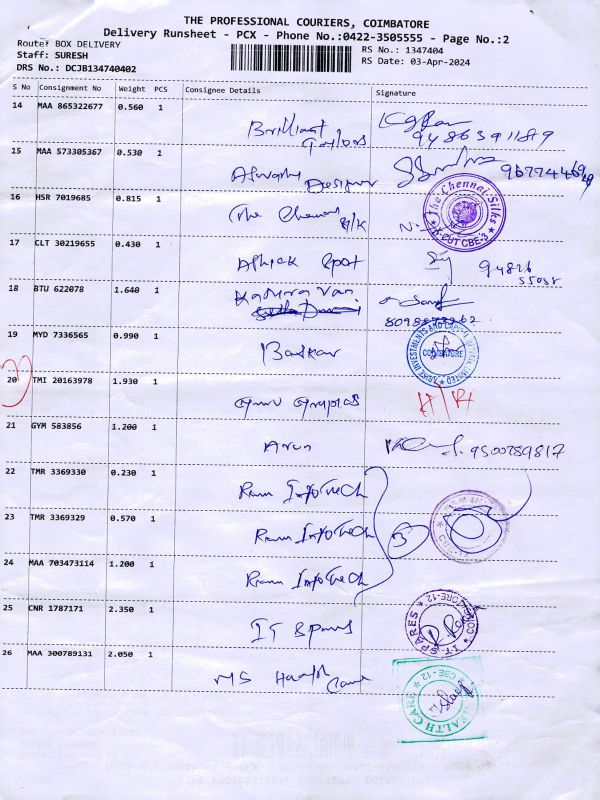 THE PROFESSIONAL COURIERS, COIMBATORE
Delivery Runsheet - PCX - Phone No.:0422-3505555 - Page No.:2
Route: BOX DELIVERY
RS No.: 1347404
Staff: SURESH
RS Date: 03-Apr-2024
DRS No.: DCJB134740402
S No Consignment No Weight PCS Consignee Details Signature
14 MAA 865322677 0.560 1
Brilliant
15 MAA 573305367 0.530 1
Designer
16 HSR 7019685 0.815 1
The Chennai Silks
X-CUT CBE-3
The Chennai
17 CLT 30219655 0.430 1
Spot
18 BTU 622078 1.640 1
19 MYD 7336565 0.990 1
Baskar
COIMBATORE
20 TMI 20163978 1.930 1
21 GYM 583856 1.200 1
Arun
9500789817
22 TMR 3369330 0.230 1
Ram InfoTech
23 TMR 3369329 0.570 1
Ram InfoTech
3
24 MAA 703473114 1.200 1
Ram InfoTech
25 CNR 1787171 2.350 1
IT Spares
IT-SPARES
26 MAA 300789131 2.050 1
MS Health Care
HEALTH CARE
CBE-12